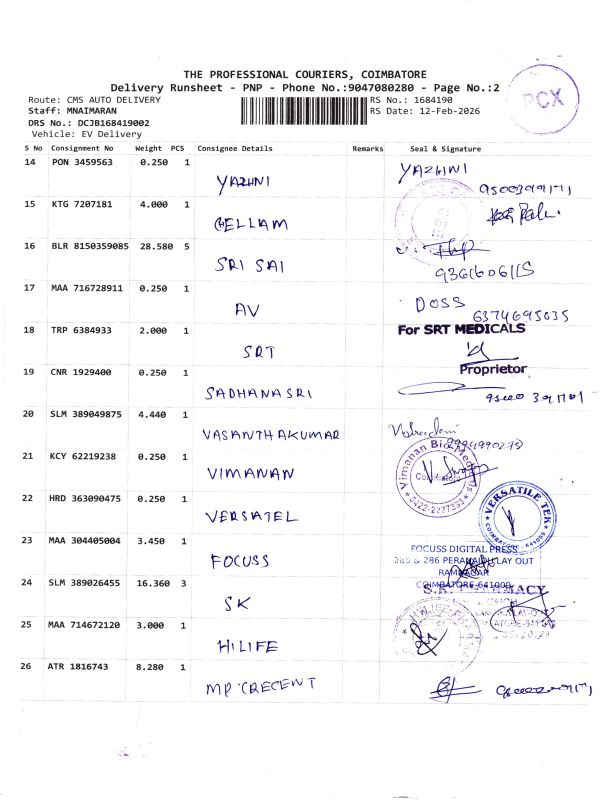 THE PROFESSIONAL COURIERS, COIMBATORE
Delivery Runsheet - PNP - Phone No.:9047080280 - Page No.:2
Route: CMS AUTO DELIVERY RS No.: 1684190
Staff: MNAIMARAN RS Date: 12-Feb-2026
DRS No.: DCJB168419002
Vehicle: EV Delivery
PCX
S No Consignment No Weight PCS Consignee Details Remarks Seal & Signature
14 PON 3459563 0.250 1
YAZHINI YAZHINI
15 KTG 7207181 4.000 1
CHELLAM
16 BLR 8150359085 28.580 5
SRI SAI
9361606115
17 MAA 716728911 0.250 1
AV DOSS
6374695035
18 TRP 6384933 2.000 1 For SRT MEDICALS
SRT
Proprietor
19 CNR 1929400 0.250 1
SADHANASRI
20 SLM 389049875 4.440 1
VASANTHAKUMAR
21 KCY 62219238 0.250 1
VIMANAN Vimanan Bio Medicals
Coimbatore
0422-2237333
22 HRD 363090475 0.250 1
VERSATEL VERSATILE TEK
COIMBATORE - 641009
23 MAA 304405004 3.450 1 FOCUSS DIGITAL PRESS
FOCUSS 285 & 286 LAY OUT
RAMNAGAR
COIMBATORE-641009
24 SLM 389026455 16.360 3 S.K. PHARMACY
SK
25 MAA 714672120 3.000 1
HILIFE
26 ATR 1816743 8.280 1
MP CRECENT